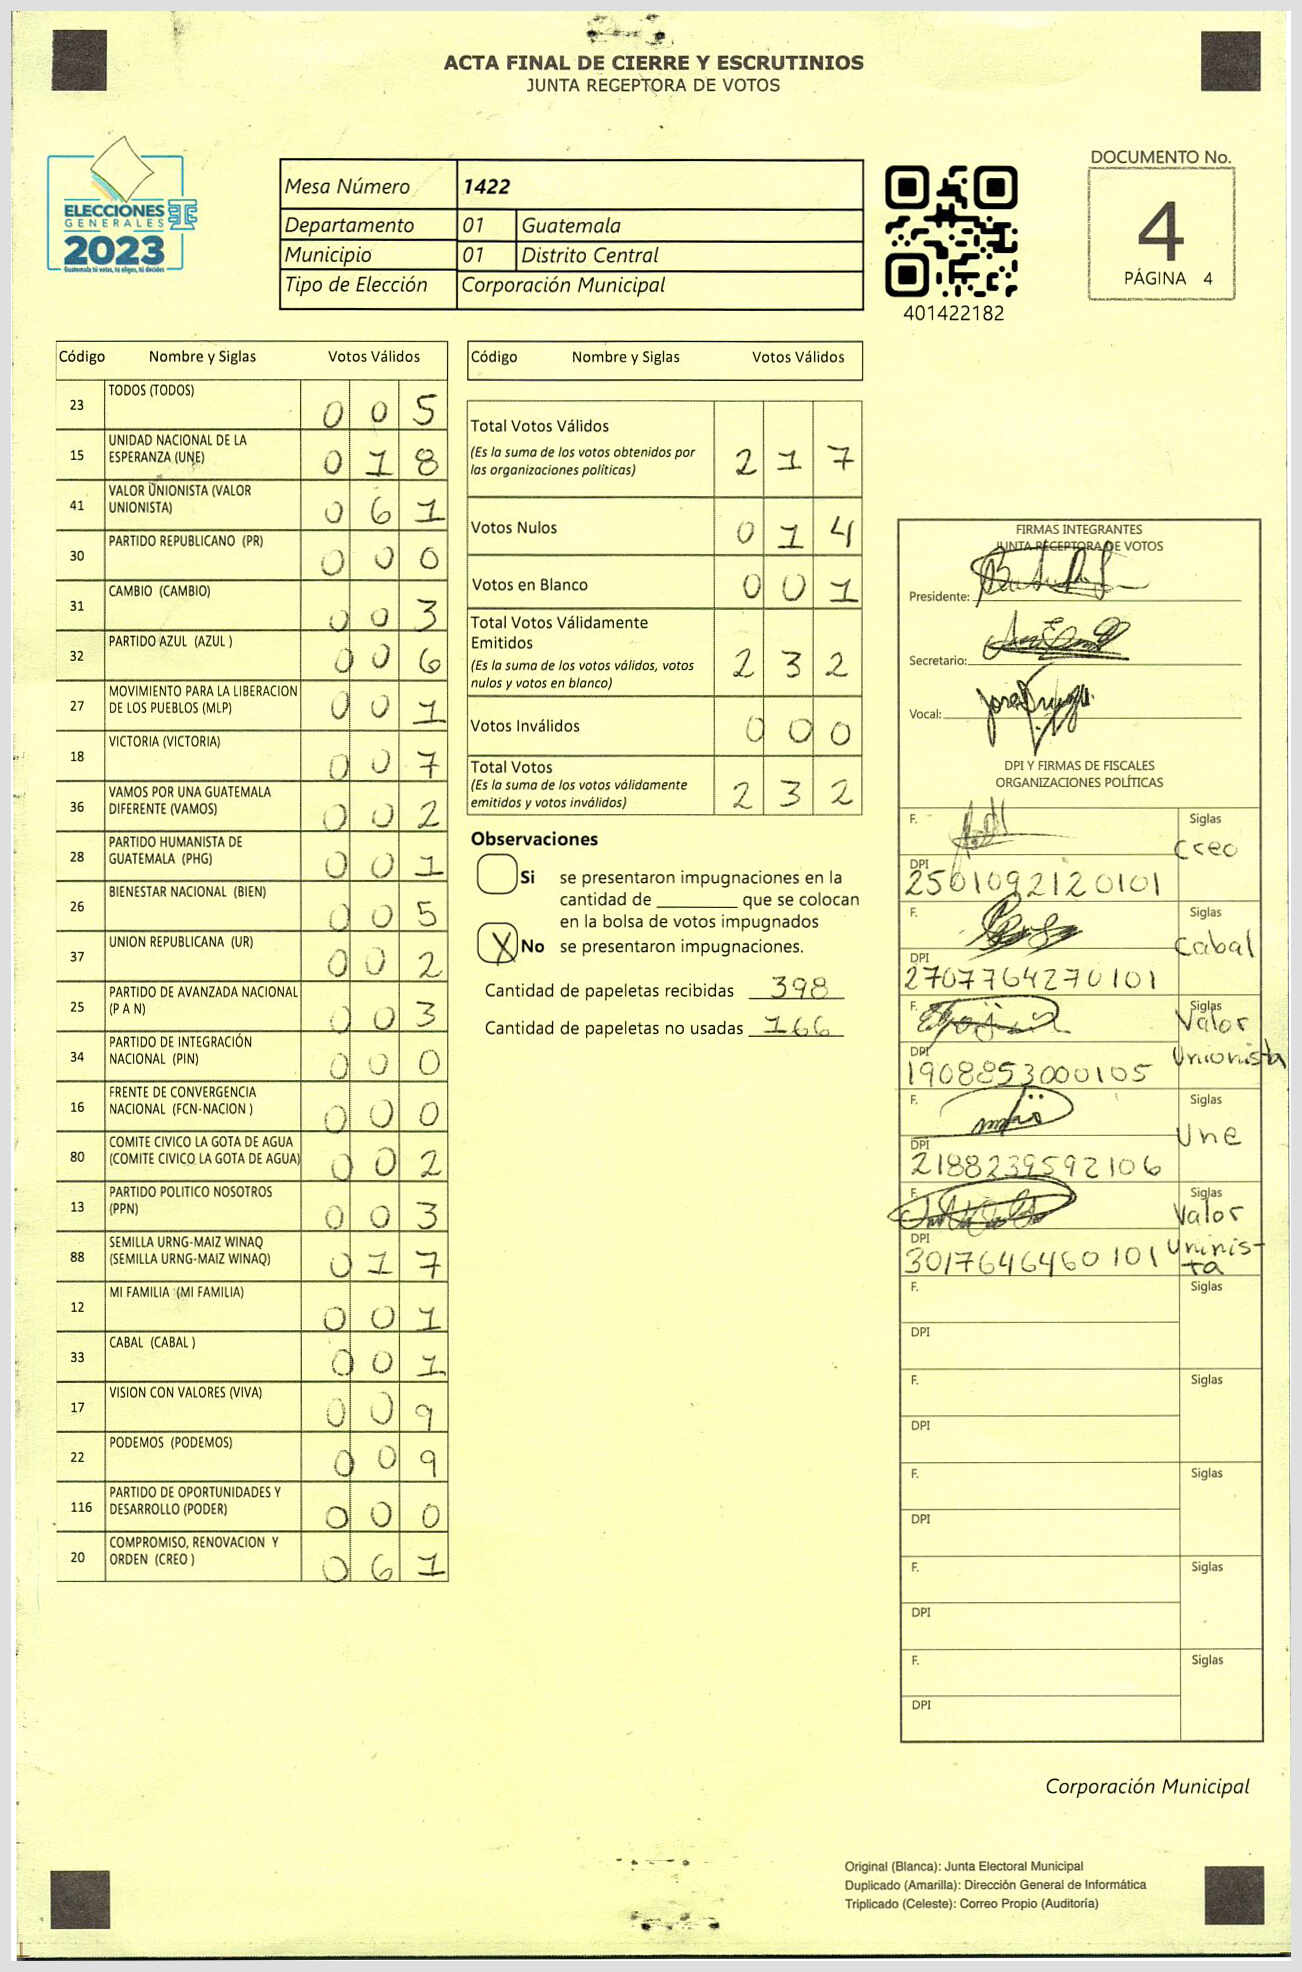 ACTA FINAL DE CIERRE Y ESCRUTINIOS
JUNTA RECEPTORA DE VOTOS
ELECCIONES
GENERALES
2023
Guatemala tú votas, tú eliges, tú decides
Mesa Número 1422
Departamento 01 Guatemala
Municipio 01 Distrito Central
Tipo de Elección Corporación Municipal
401422182
DOCUMENTO No.
4
PÁGINA 4
Código Nombre y Siglas Votos Válidos
23 TODOS (TODOS) 0 0 5
15 UNIDAD NACIONAL DE LA
ESPERANZA (UNE) 0 1 8
41 VALOR UNIONISTA (VALOR
UNIONISTA) 0 6 1
30 PARTIDO REPUBLICANO (PR) 0 0 0
31 CAMBIO (CAMBIO) 0 0 3
32 PARTIDO AZUL (AZUL ) 0 0 6
27 MOVIMIENTO PARA LA LIBERACION
DE LOS PUEBLOS (MLP) 0 0 1
18 VICTORIA (VICTORIA) 0 0 7
36 VAMOS POR UNA GUATEMALA
DIFERENTE (VAMOS) 0 0 2
28 PARTIDO HUMANISTA DE
GUATEMALA (PHG) 0 0 1
26 BIENESTAR NACIONAL (BIEN) 0 0 5
37 UNION REPUBLICANA (UR) 0 0 2
25 PARTIDO DE AVANZADA NACIONAL
(P A N) 0 0 3
34 PARTIDO DE INTEGRACIÓN
NACIONAL (PIN) 0 0 0
16 FRENTE DE CONVERGENCIA
NACIONAL (FCN-NACION ) 0 0 0
80 COMITE CIVICO LA GOTA DE AGUA
(COMITE CIVICO LA GOTA DE AGUA) 0 0 2
13 PARTIDO POLITICO NOSOTROS
(PPN) 0 0 3
88 SEMILLA URNG-MAIZ WINAQ
(SEMILLA URNG-MAIZ WINAQ) 0 1 7
12 MI FAMILIA (MI FAMILIA) 0 0 1
33 CABAL (CABAL ) 0 0 1
17 VISION CON VALORES (VIVA) 0 0 9
22 PODEMOS (PODEMOS) 0 0 9
116 PARTIDO DE OPORTUNIDADES Y
DESARROLLO (PODER) 0 0 0
20 COMPROMISO, RENOVACION Y
ORDEN (CREO ) 0 6 1
Código Nombre y Siglas Votos Válidos
Total Votos Válidos
(Es la suma de los votos obtenidos por
las organizaciones políticas) 2 1 7
Votos Nulos 0 1 4
Votos en Blanco 0 0 1
Total Votos Válidamente
Emitidos
(Es la suma de los votos válidos, votos
nulos y votos en blanco) 2 3 2
Votos Inválidos 0 0 0
Total Votos
(Es la suma de los votos válidamente
emitidos y votos inválidos) 2 3 2
Observaciones
Si se presentaron impugnaciones en la
cantidad de ________ que se colocan
en la bolsa de votos impugnados
X No se presentaron impugnaciones.
Cantidad de papeletas recibidas 398
Cantidad de papeletas no usadas 166
FIRMAS INTEGRANTES
JUNTA RECEPTORA DE VOTOS
Presidente:
Secretario:
Vocal:
DPI Y FIRMAS DE FISCALES
ORGANIZACIONES POLÍTICAS
F. Siglas
Creo
DPI
2501092120101
F. Siglas
Cabal
DPI
2707764270101
F. Siglas
Valor
Unionista
DPI
1908853000105
F. Siglas
Une
DPI
2188239592106
F. Siglas
Valor
Uninis-
ta
DPI
3017646460101
F. Siglas
DPI
F. Siglas
DPI
F. Siglas
DPI
F. Siglas
DPI
F. Siglas
DPI
Corporación Municipal
Original (Blanca): Junta Electoral Municipal
Duplicado (Amarilla): Dirección General de Informática
Triplicado (Celeste): Correo Propio (Auditoría)